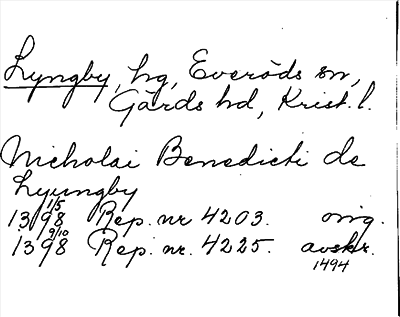 Lyngby, hg, Everöds sn,
Gärds hd, Krist. l.
Nicholai Benedicti de
Lyungby
13 1/5 98 Rep. nr 4203. orig.
13 9/10 98 Rep. nr. 4225. avskr.
1494